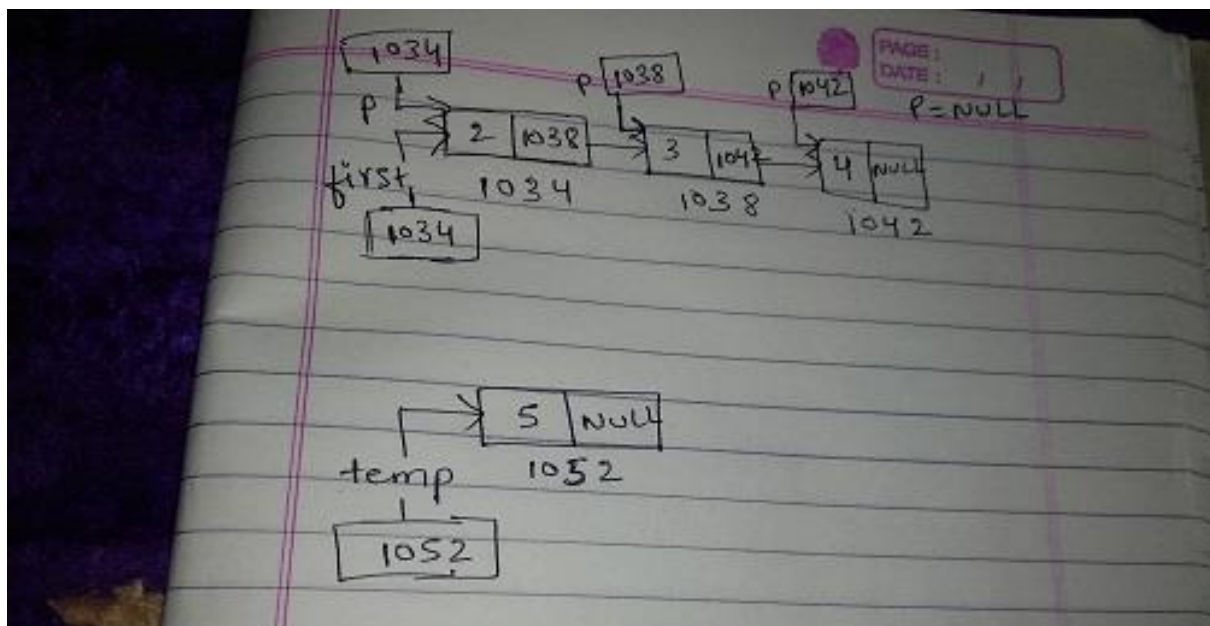 1034
PAGE:
DATE: / /
P 1038
P 1042
P = NULL
P
2 1038
3 1042
4 NULL
first
1034
1038
1042
1034
5 NULL
temp
1052
1052